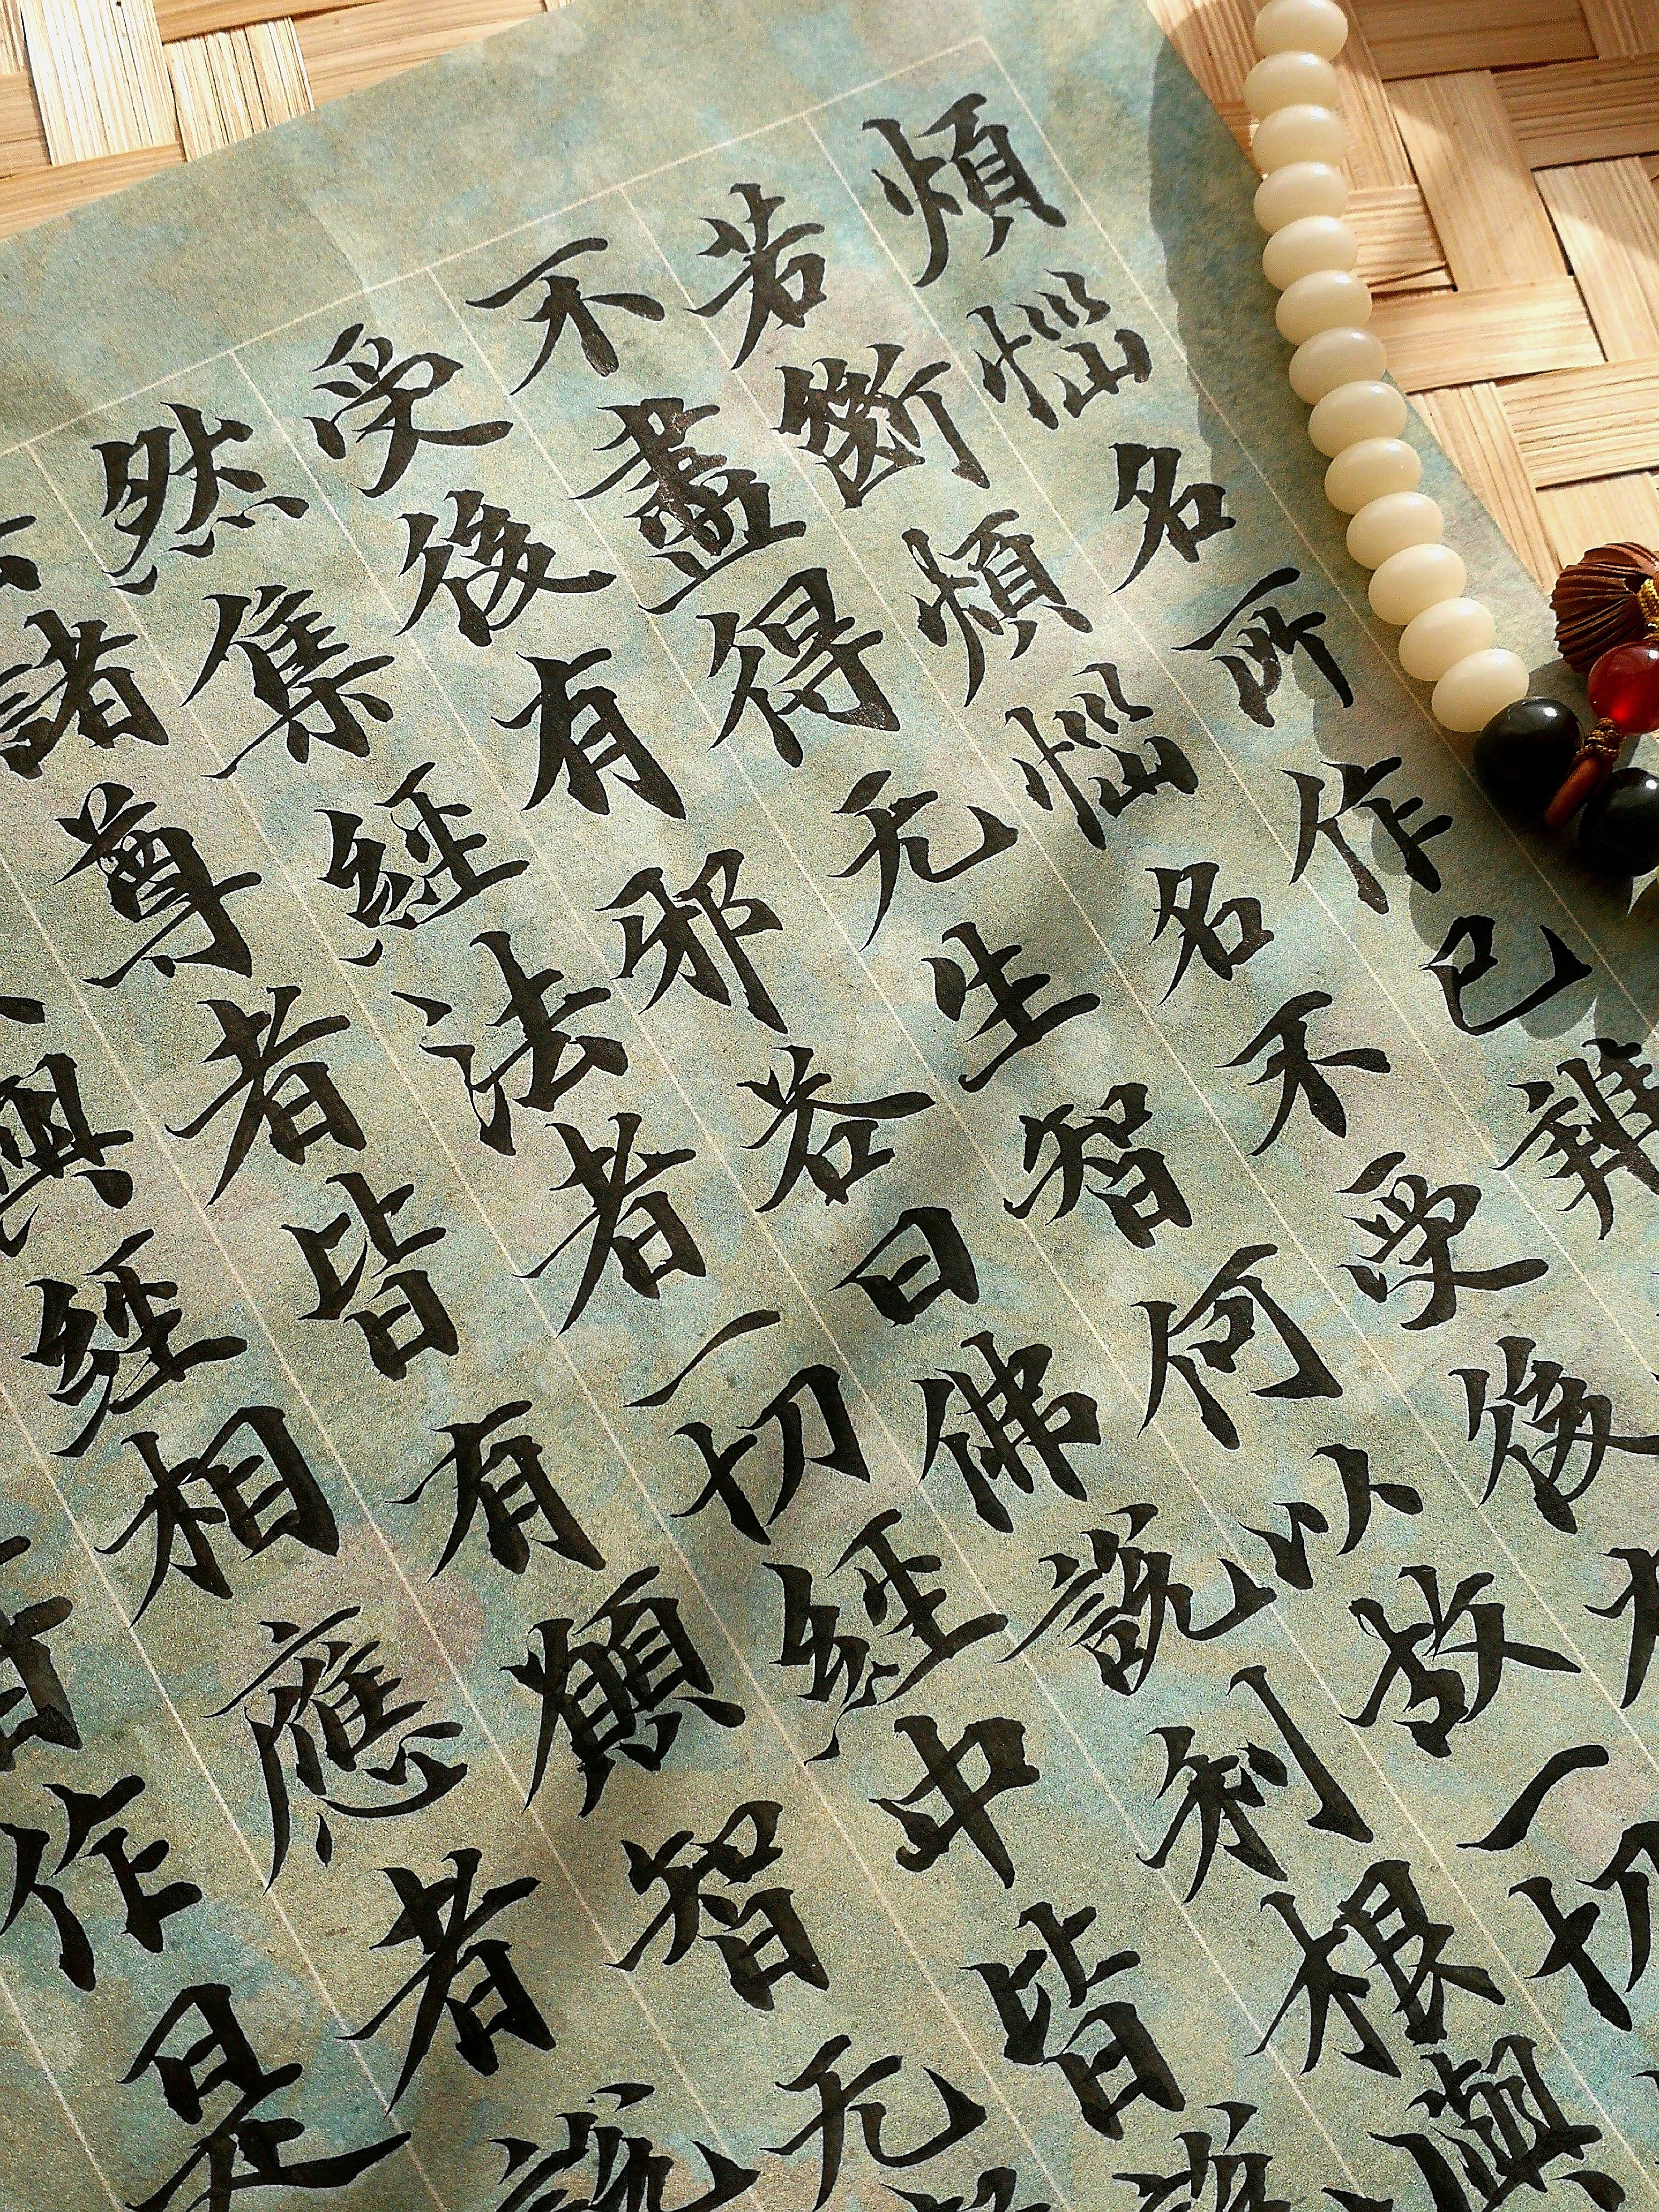 煩惱名所作已
若斷煩惱名不受後有
不盡得无生智何以故一切
受後有邪答曰佛說利根
然集經法者一切經中皆說
諸尊者皆有願智无
與經相應者說
作是